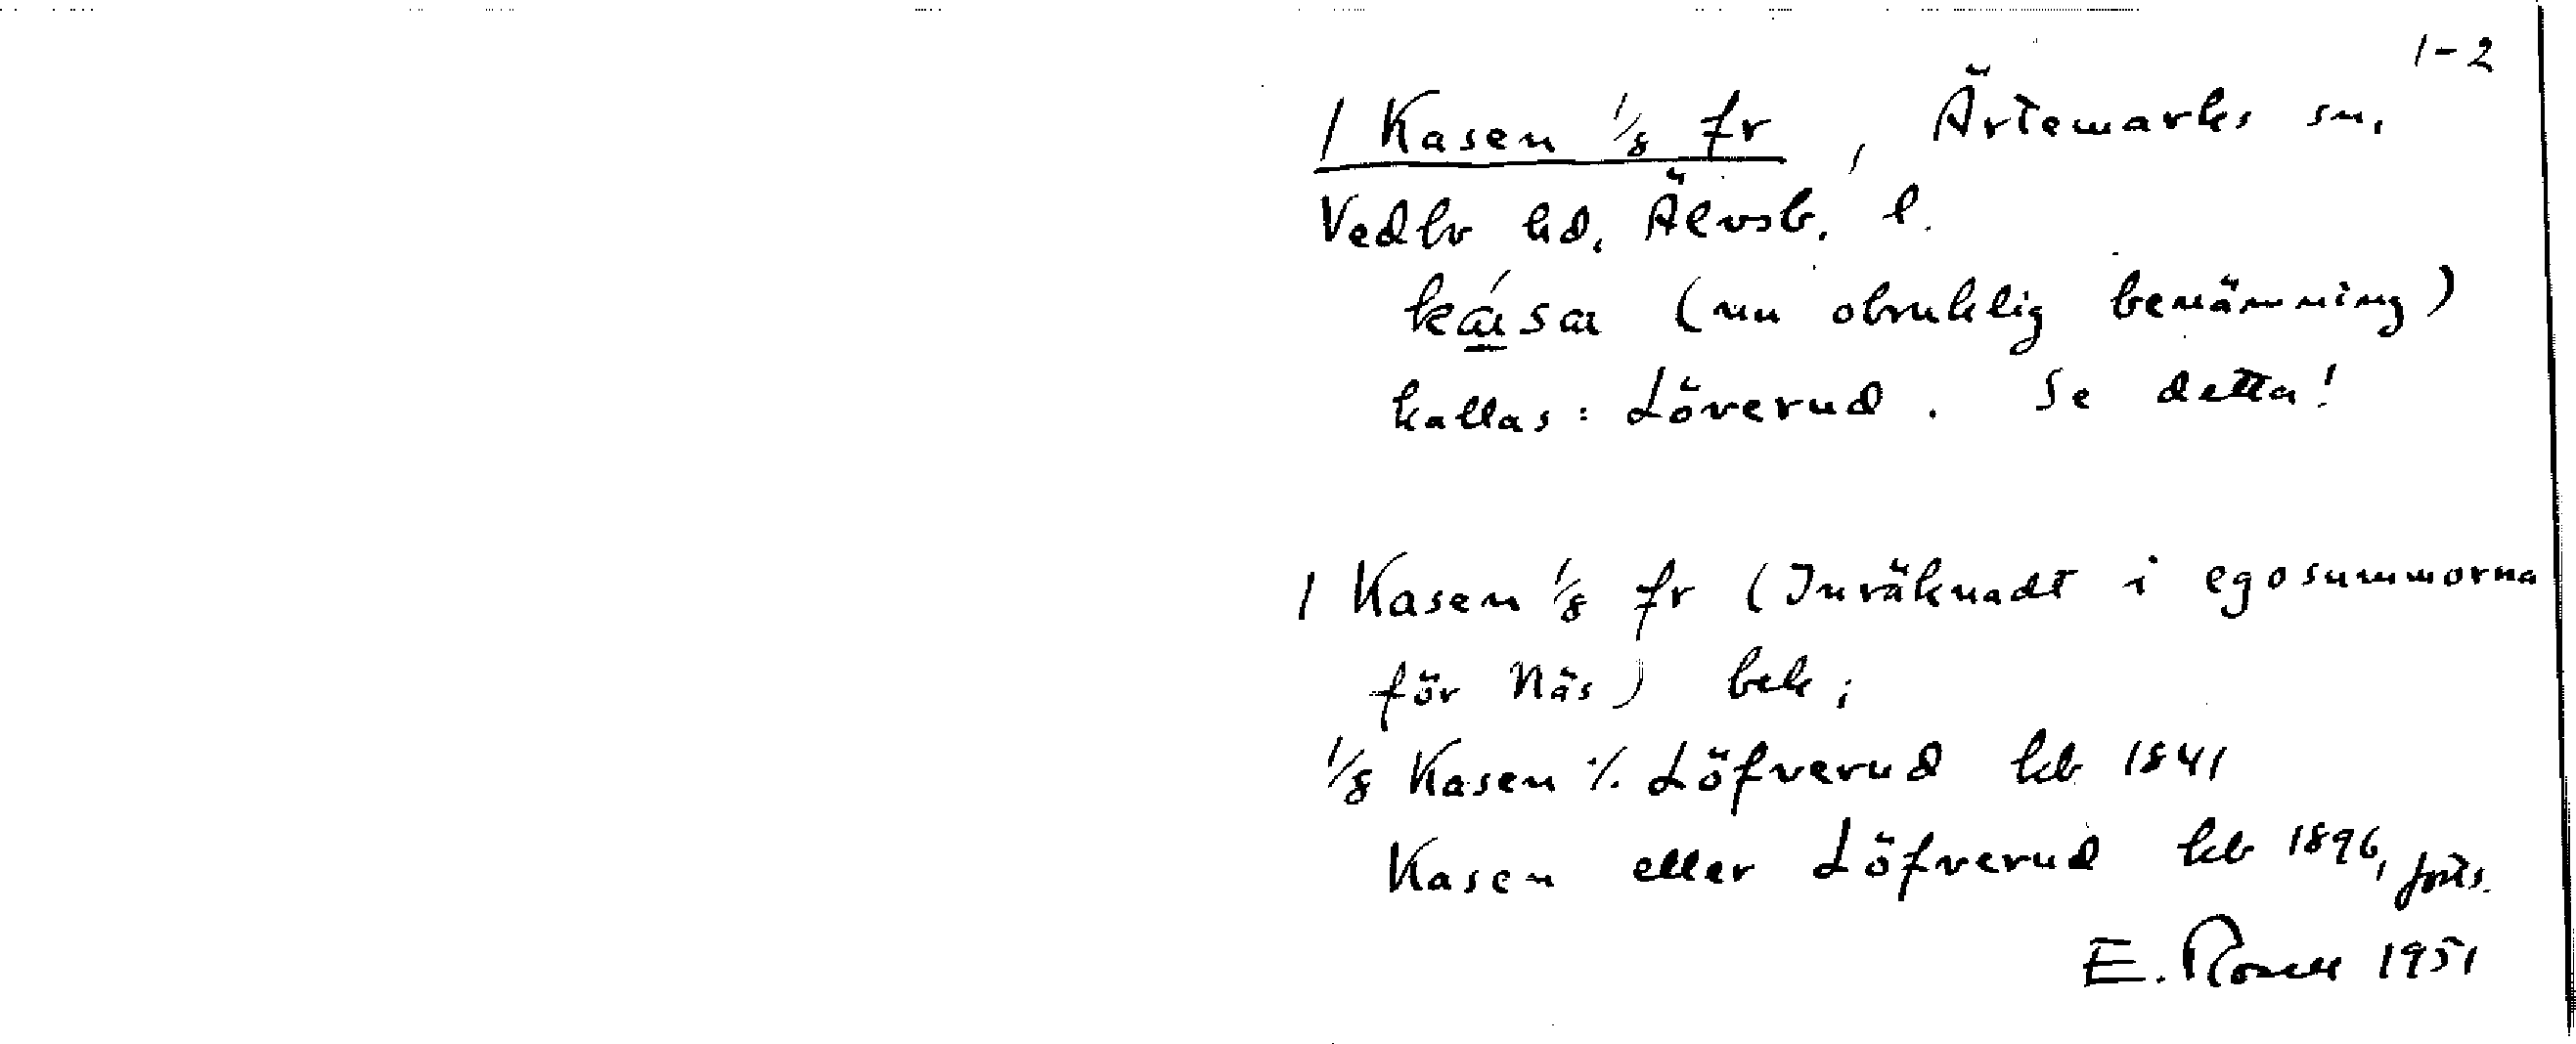 1-2
1 Kasen 1/8 fr, Ärtemarks sn.
Vedbo hd. Älvsb. l.
ká̱sa (nu obruklig benämning)
kallas: Löverud. Se detta!
1 Kasen 1/8 fr (Inräknadt i egosummorna
för Näs) bek;
1/8 Kasen ./. Löfverud kb 1841
Kasen eller Löfverud kb 1896, forts.
E. Rosell 1951